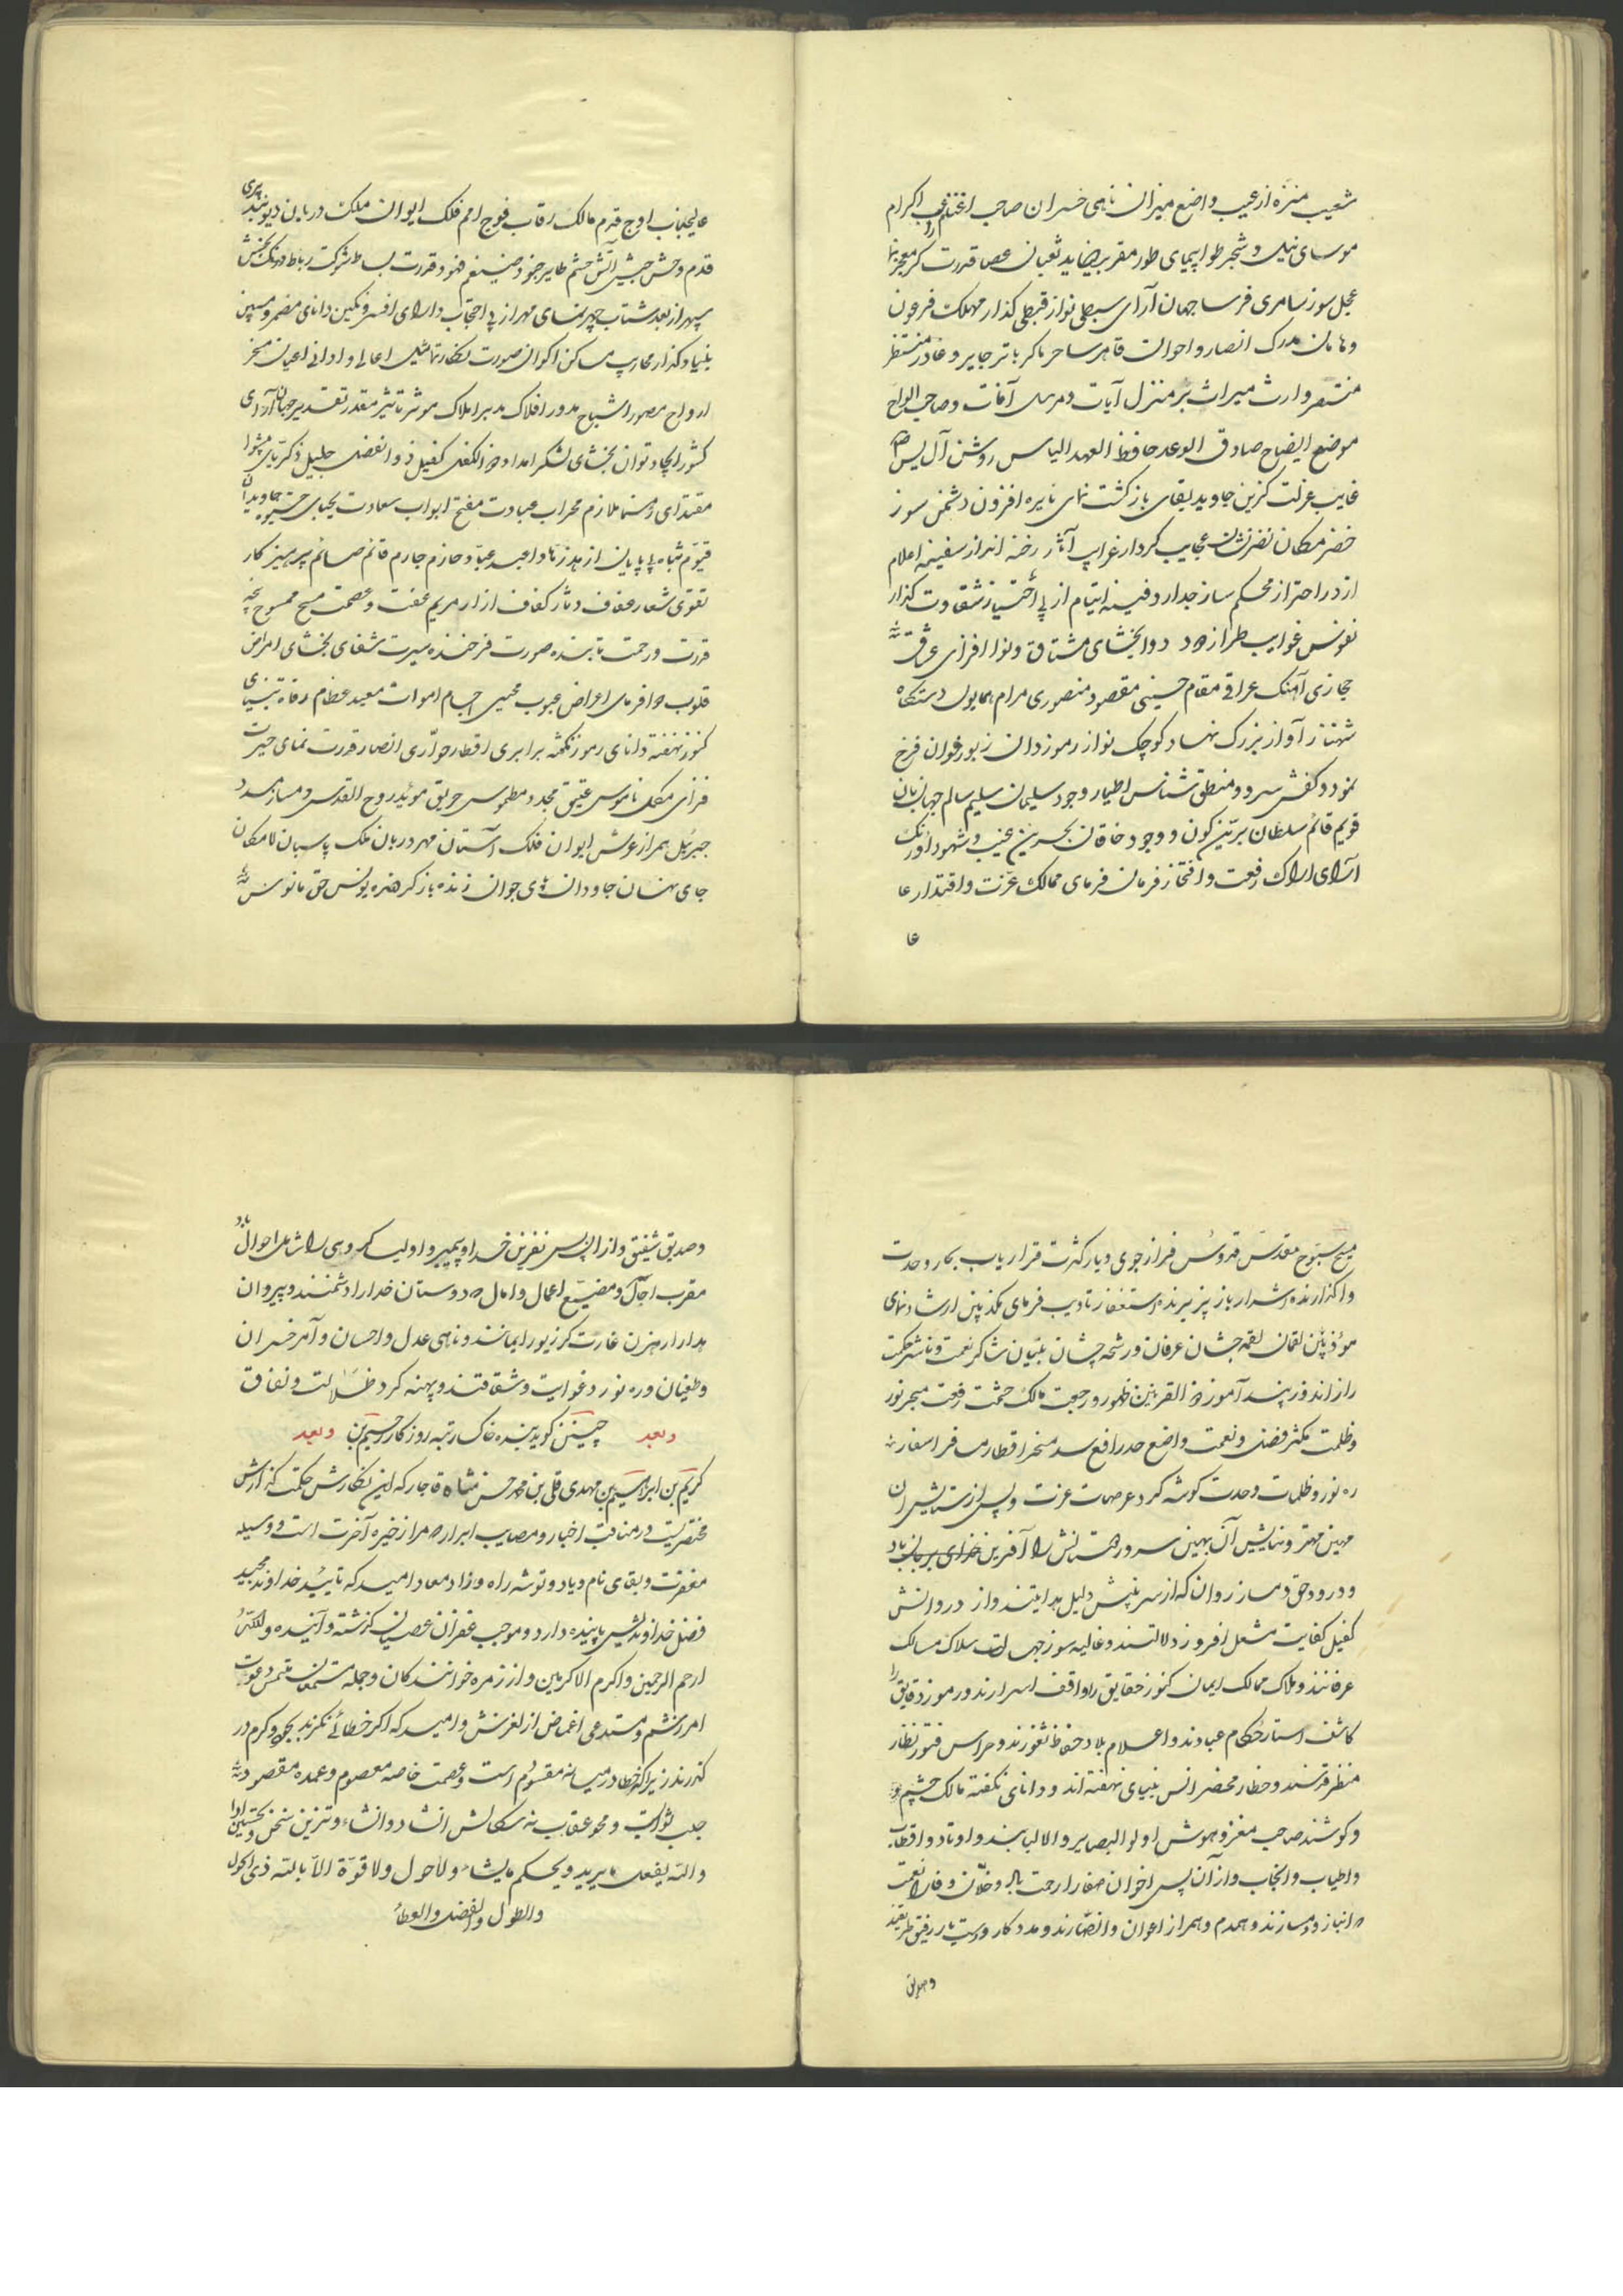 شعیب منزه از عیب واضع میزان ناهی خسران صاحب اکرام
موسای نیل و شجر طوا پیمای طور مقر بیضا ید ثعبان عصا قدرت کر معجز نما
عجل سوز سامری فرسا جهان آرای سبطی نواز قبطی کذار مهلک فرعون
و هامان مدرک انصار و اخوان قاهر ساحر ماکر باتر جابر و غادر منتظر
منتصر وارث میراث بر منزل آیات و مرسل آفات و صاحب الواح
موضع ایضاح صادق الوعد حافظ العهد الیاس روشن آل یس
غایب عزلت کزین جاوید بقای باز کشت نمای نایره افزون دشمن سوز
خضر مکان نضر نشان عجایب کردار غرایب آثار رخنه انداز سفینه اعلام
از در احتراز محکم ساز جدار دفینه ایتام از پی شقاوت کذار
نفوس غوایب طراز داود دوا بخشای مشتاق و نوا افزای عشاق
حجازی آهنک عراقی مقام حسینی مقصود منصوری مرام همایون دستکاه
شهناز آواز بزرک نهاد کوچک نواز رموز دان زبور خوان فرخ
نمود و کفش سرود و منطق شناس اطیار وجود سلیمان سلیم سالم جهان بان
قویم قائم سلطان برین کون و وجود خاقان بحرین غیب و شهود اورنک
آرای اراک رفعت و افتخار فرمان فرمای ممالک عزت و اقتدار عا
عا
عالیجناب اوج قدم مالک رقاب فوج امم فلک ایوان ملک دربان دیو بند پری
قدم وحش جیش آتش حشم طایر جنود ضیغم فهود قدرت بساط شوکت رباط اورنک بخش
سپهر از بعد شتاب چهر نمای مهر از پی احتجاب دارای افسر و نکین دانای مضمر و مبین
بنیاد کذار محاریب مساکن اکوان صورت نکار تماثیل اعالی و ادانی اعیان مسخر
ارواح مصور اشباح مدور افلاک مدبر املاک موثر تاثیر مقدر تقدیر جهان آرای
کشور ایجاد توان بخشای لشکر امداد ذو الکفل کفیل ذو الفضل جلیل ذکریای پیشوا
مقتدای رهنما ملازم محراب عبادت مفتح ابواب سعادت یحیای جاویدان
قیوم شاه از هد زهاد اعبد عباد حازم جازم قائم صائم پرهیز کار
تقوی شعار عفاف دثار کفاف ازار مریم عفت و عصمت مسیح ممسوح
قدرت و رحمت تابنده صورت فرخنده سیرت شفای بخشای امراض
قلوب دوا فرمای اعراض عیوب محیی اجسام اموات معید عظام رفات
کنوز نهفته دانای رموز نکفته برابری اقطار حواری انصار قدرت نمای حیرت
فزای مکمل ناموس عتیق مجدد مطموس حریق موئد روح القدس و مسار
جبرئیل همراز عرش ایوان فلک آستان مهر دربان ملک پاسبان لامکان
جای نهان جاودان های جوان زنده باز کرهنده یونس حق مانوس
مسبح سبوح مقدس قدوس فراز جوی دیار کثرت قرار یاب بحار وحدت
واکذارنده اشرار باز پذیرنده استغفار تادیب فرمای مکذبین ارشاد نمای
موذین لقمان لقمه چشان عرفان و رشحه چشان تبیان شاکر نعمت و ناشر حکمت
راز اندوز پند آموز ذو القرنین ظهور و رجعت مالک حشمت و رفعت مسخر نور
و ظلمت مکثر فضل و نعمت واضع حد رافع سد مسخر اقطار مسافر اسفار
ره نورد ظلمات وحدت کوشه کرد عرصات عزت و پس از ستایش ان
مهین مهتر و نیایش آن بهین سرور همتانش را آفرین خدای بر جان باد
و درود حق دمساز روان که از سر بینش دلیل هدایتند و از در دانش
کفیل کفایت مشعل افروز دلالتند و غالیه سوز جهالت سلاک مسالک
عرفانند و ملاک ممالک ایمان کنوز حقایق را واقف اسرارند و رموز دقایق را
کاشف استار حکام عبادند و اعلام بلاد حفاظ ثغورند و حراس قصور نظار
منظر قدسند و حظار محضر انس بینای نهفته اند و دانای نکفته مالک چشم و
و کوشند صاحب مغز و هوش اولو البصایر و الالبابند و اوتاد و اقطاب
و اطیاب و انجاب و از آن پس اخوان صفا را رحمت باد و خلان وفا را نعمت
که انباز و دمسازند و همدم و همراز اعوان و انصارند و مدد کار و دوست یار رفیق طریقند
و صدیق
و صدیق شفیق و از ان پس نفرین خدا و پیمبر و اولیا کروهی را شامل احوال باد
مقرب آجال و مضیع اعمال و امال که دوستان خدا را دشمنند و پیروان
هدا را رهزن غارت کر زیور ایمانند و ناهی عدل و احسان و آمر خسران
و طغیان و ره نورد غوایت و شقاقند و پهنه کرد ظلالت و نفاق
و بعد چنین کوید بنده خاکسار تبه روزکار رحیم بن و بعد
کریم بن ابراهیم بن مهدی قلی بن محمد حسن شاه قاجار که این نکارش حکمت کذارش
مختصریست در مناقب اخیار و مصایب ابرار که مرا ذخیره آخرت است و وسیله
مغفرت و بقای نام و یاد و توشه راه و زاد معاد امید که تایید خداوند مجید
فضل خداوندیش پاینده دارد و موجب غفران عصیان کذشته و آینده و الله
ارحم الرحمین و اکرم الاکرمین و از زمره خوانندکان و جمله مستمعان ملتمس دعوت
امرزشم و مستدعی اغماض از لغزش و امید که اکر خطائی نکرند بجود و کرم در
کذرند زیرا که خطا در میانه مقسوم است و عصمت خاصه معصوم و عمده مقصود
جلب ثوابست و محو عقاب نه سکالش انشاد و انشاء و تزیین سخن و تحسین ادا
و الله یفعل ما یرید و یحکم ما یشاء و لا حول و لا قوة الا بالله ذی الحول
و الطول و الفضل و العطاء